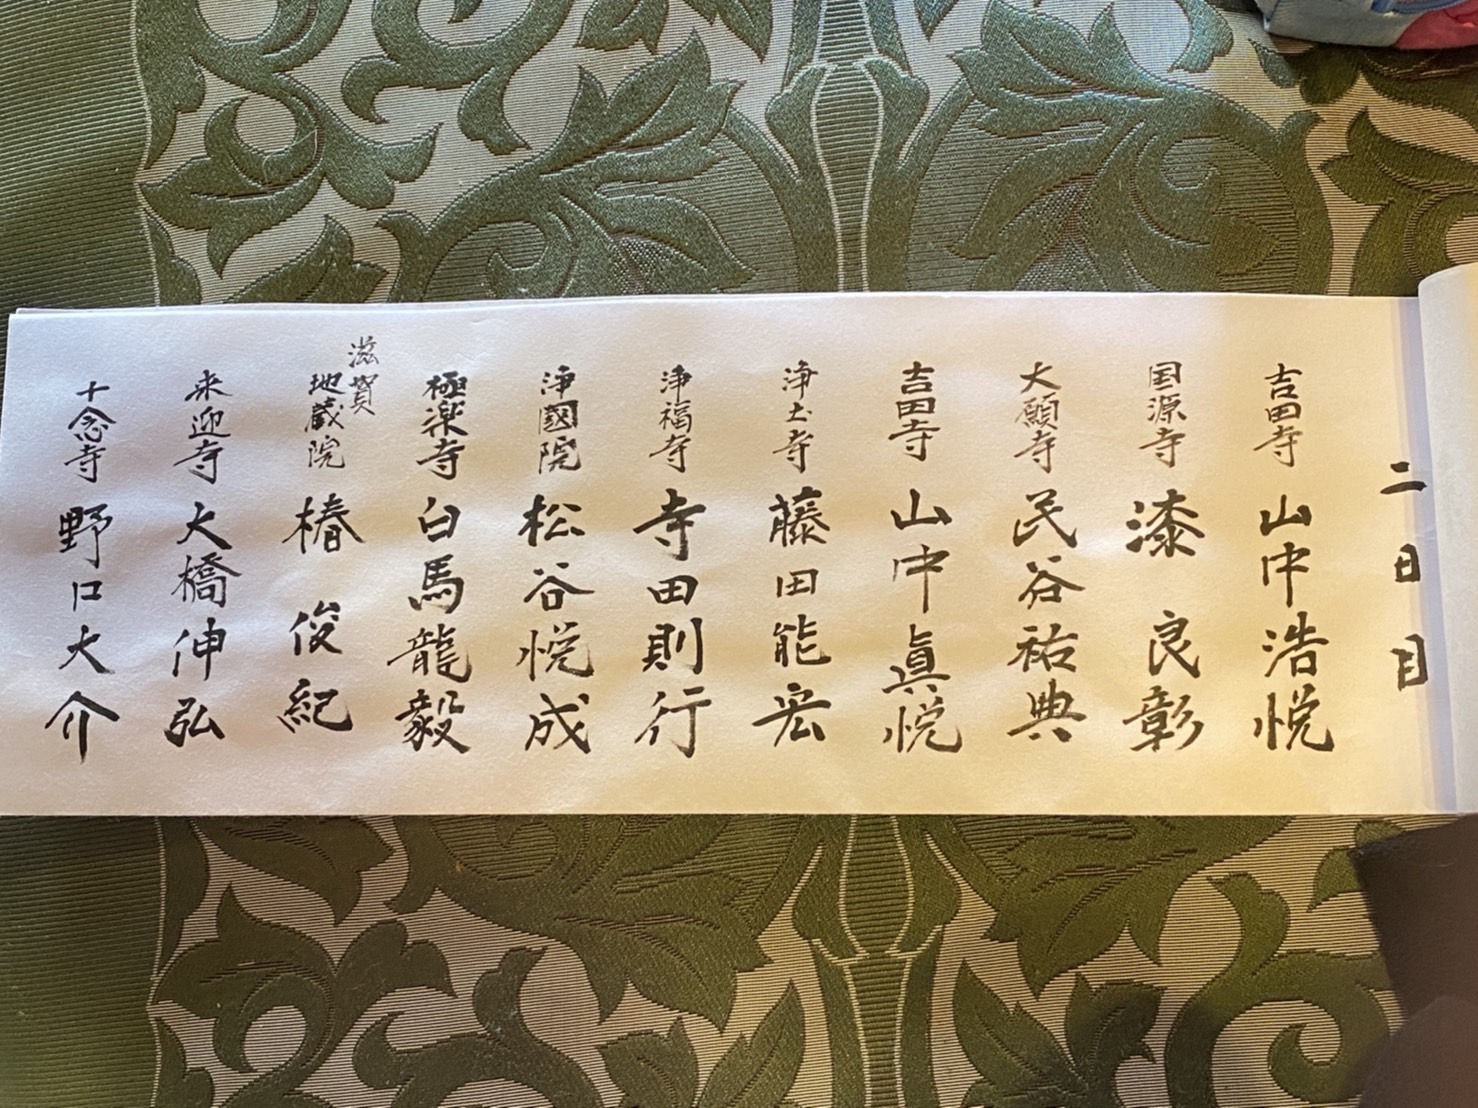 二日目
吉田寺 山中浩悦
国源寺 漆 良彰
大願寺 民谷祐典
吉田寺 山中眞悦
浄土寺 藤田能宏
浄福寺 寺田則行
浄國院 松谷悦成
極楽寺 白馬龍毅
滋賀
地蔵院 椿 俊紀
来迎寺 大橋伸弘
十念寺 野口大介